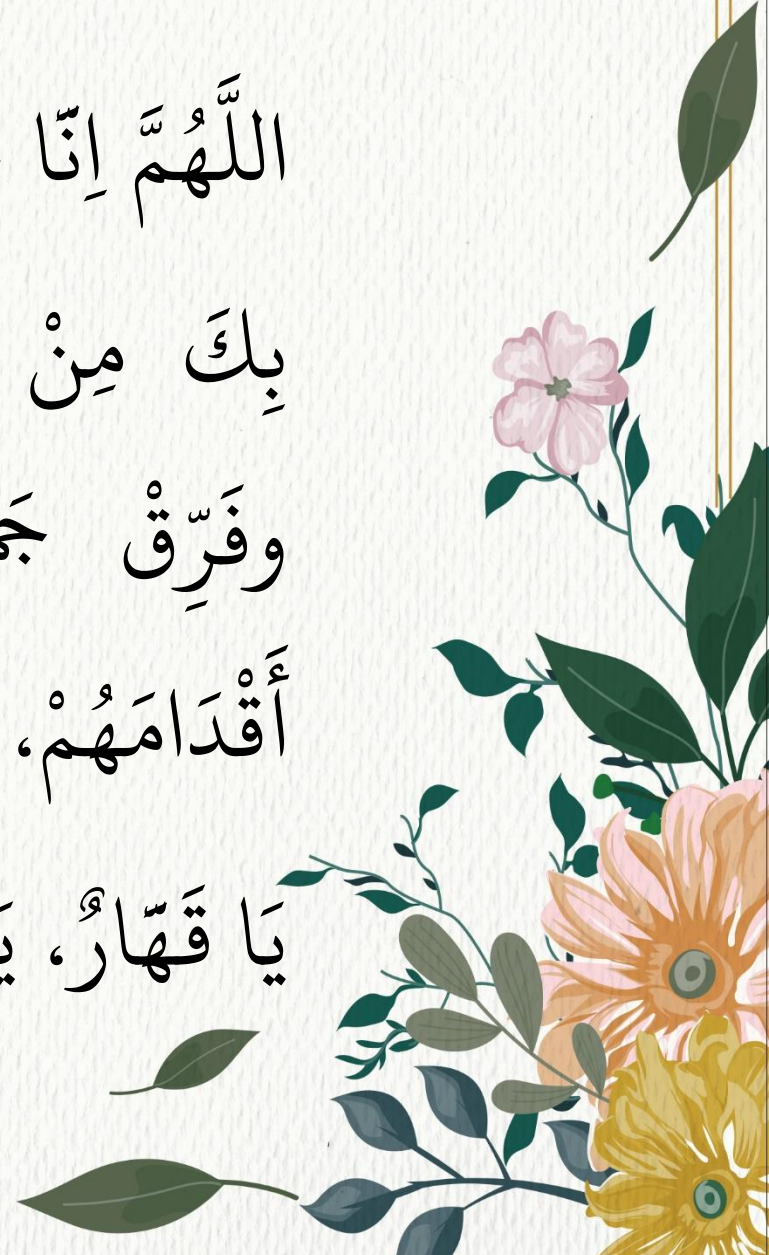 اللَّهُمَّ اِنَّا
بِكَ مِنْ
وفَرِّقْ
أَقْدَامَهُمْ،
يَا قَهّارٌ،